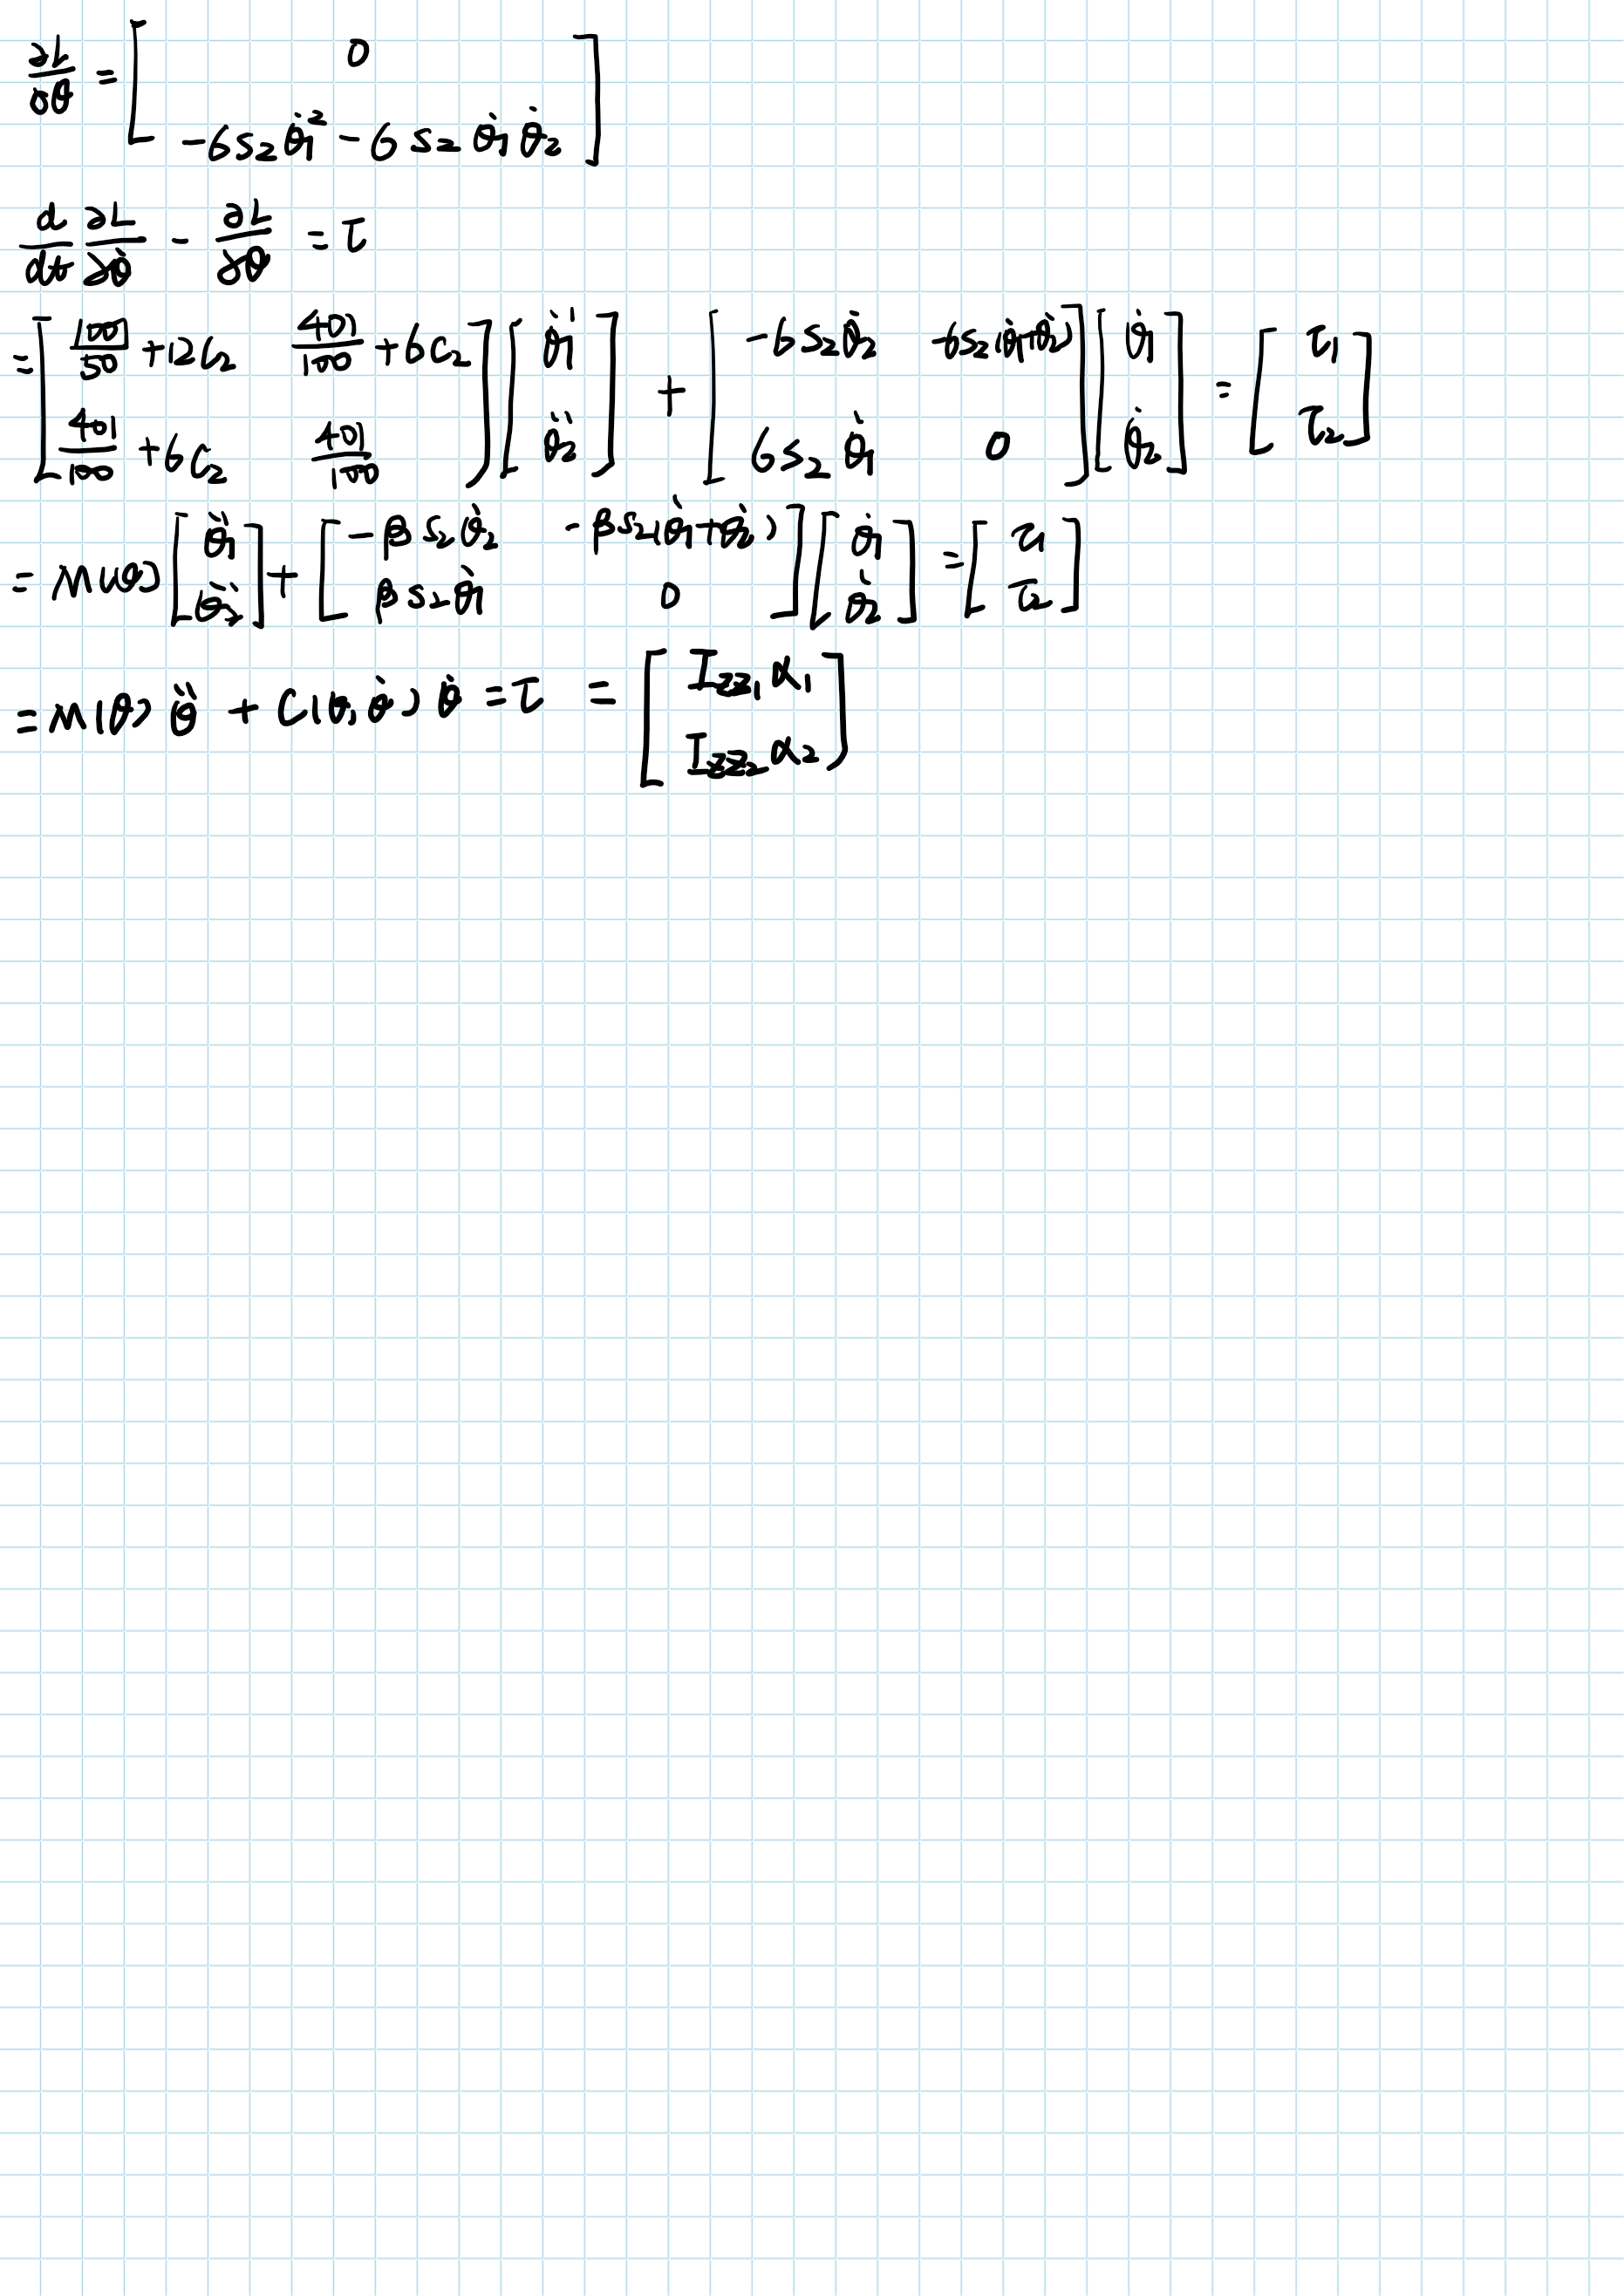 ∂L/∂θ = [ 0 ; -6s₂θ̇₁² - 6s₂θ̇₁θ̇₂ ]
d/dt ∂L/∂θ̇ - ∂L/∂θ = τ
= [ /50 + 12c₂   401/100 + 6c₂ ; 401/100 + 6c₂   401/100 ] [ θ̈₁ ; θ̈₂ ] + [ -6s₂θ̇₂   -6s₂(θ̇₁+θ̇₂) ; 6s₂θ̇₁   0 ] [ θ̇₁ ; θ̇₂ ] = [ τ₁ ; τ₂ ]
= M(θ) [ θ̈₁ ; θ̈₂ ] + [ -βs₂θ̇₂   -βs₂(θ̇₁+θ̇₂) ; βs₂θ̇₁   0 ] [ θ̇₁ ; θ̇₂ ] = [ τ₁ ; τ₂ ]
= M(θ) θ̈ + C(θ,θ̇) θ̇ = τ = [ I_zz₁ α₁ ; I_zz₂ α₂ ]